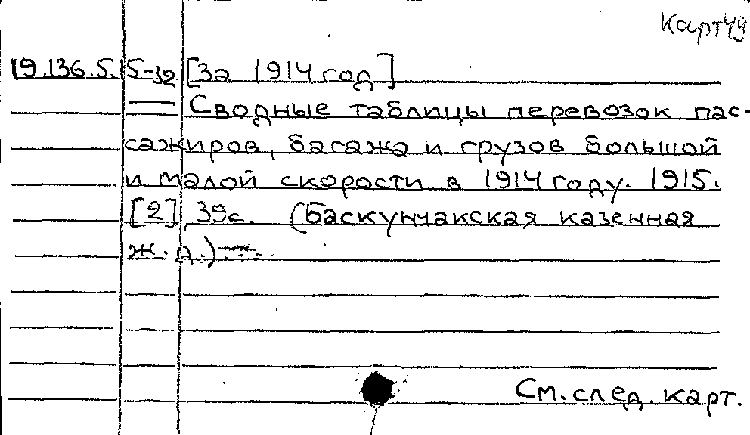 Карт49
19.136.5.15-32 [За 1914 год]
Сводные таблицы перевозок пас-
сажиров, багажа и грузов большой
и малой скорости в 1914 году. 1915.
[2], 39с. (Баскунчакская казенная
ж.д.)
См. след. карт.